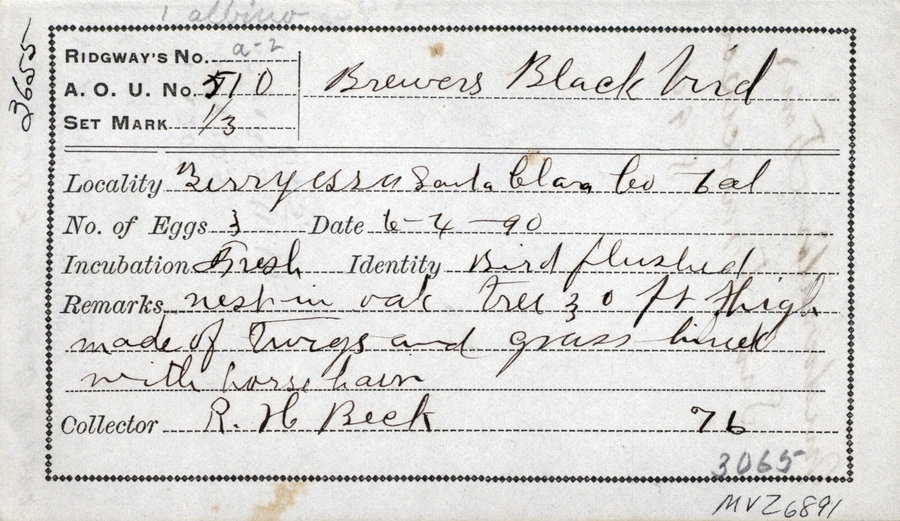 1 albino
36055
RIDGWAY'S No. a-2
A. O. U. No. 510 Brewers Black bird
SET MARK 1/3
Locality Berryessa Santa Clara Co Cal
No. of Eggs 3 Date 6-4-90
Incubation Fresh Identity Bird flushed
Remarks nest in oak tree 30 ft high
made of twigs and grass lined
with horse hair
Collector R. H Beck 76
3065
MVZ 6891